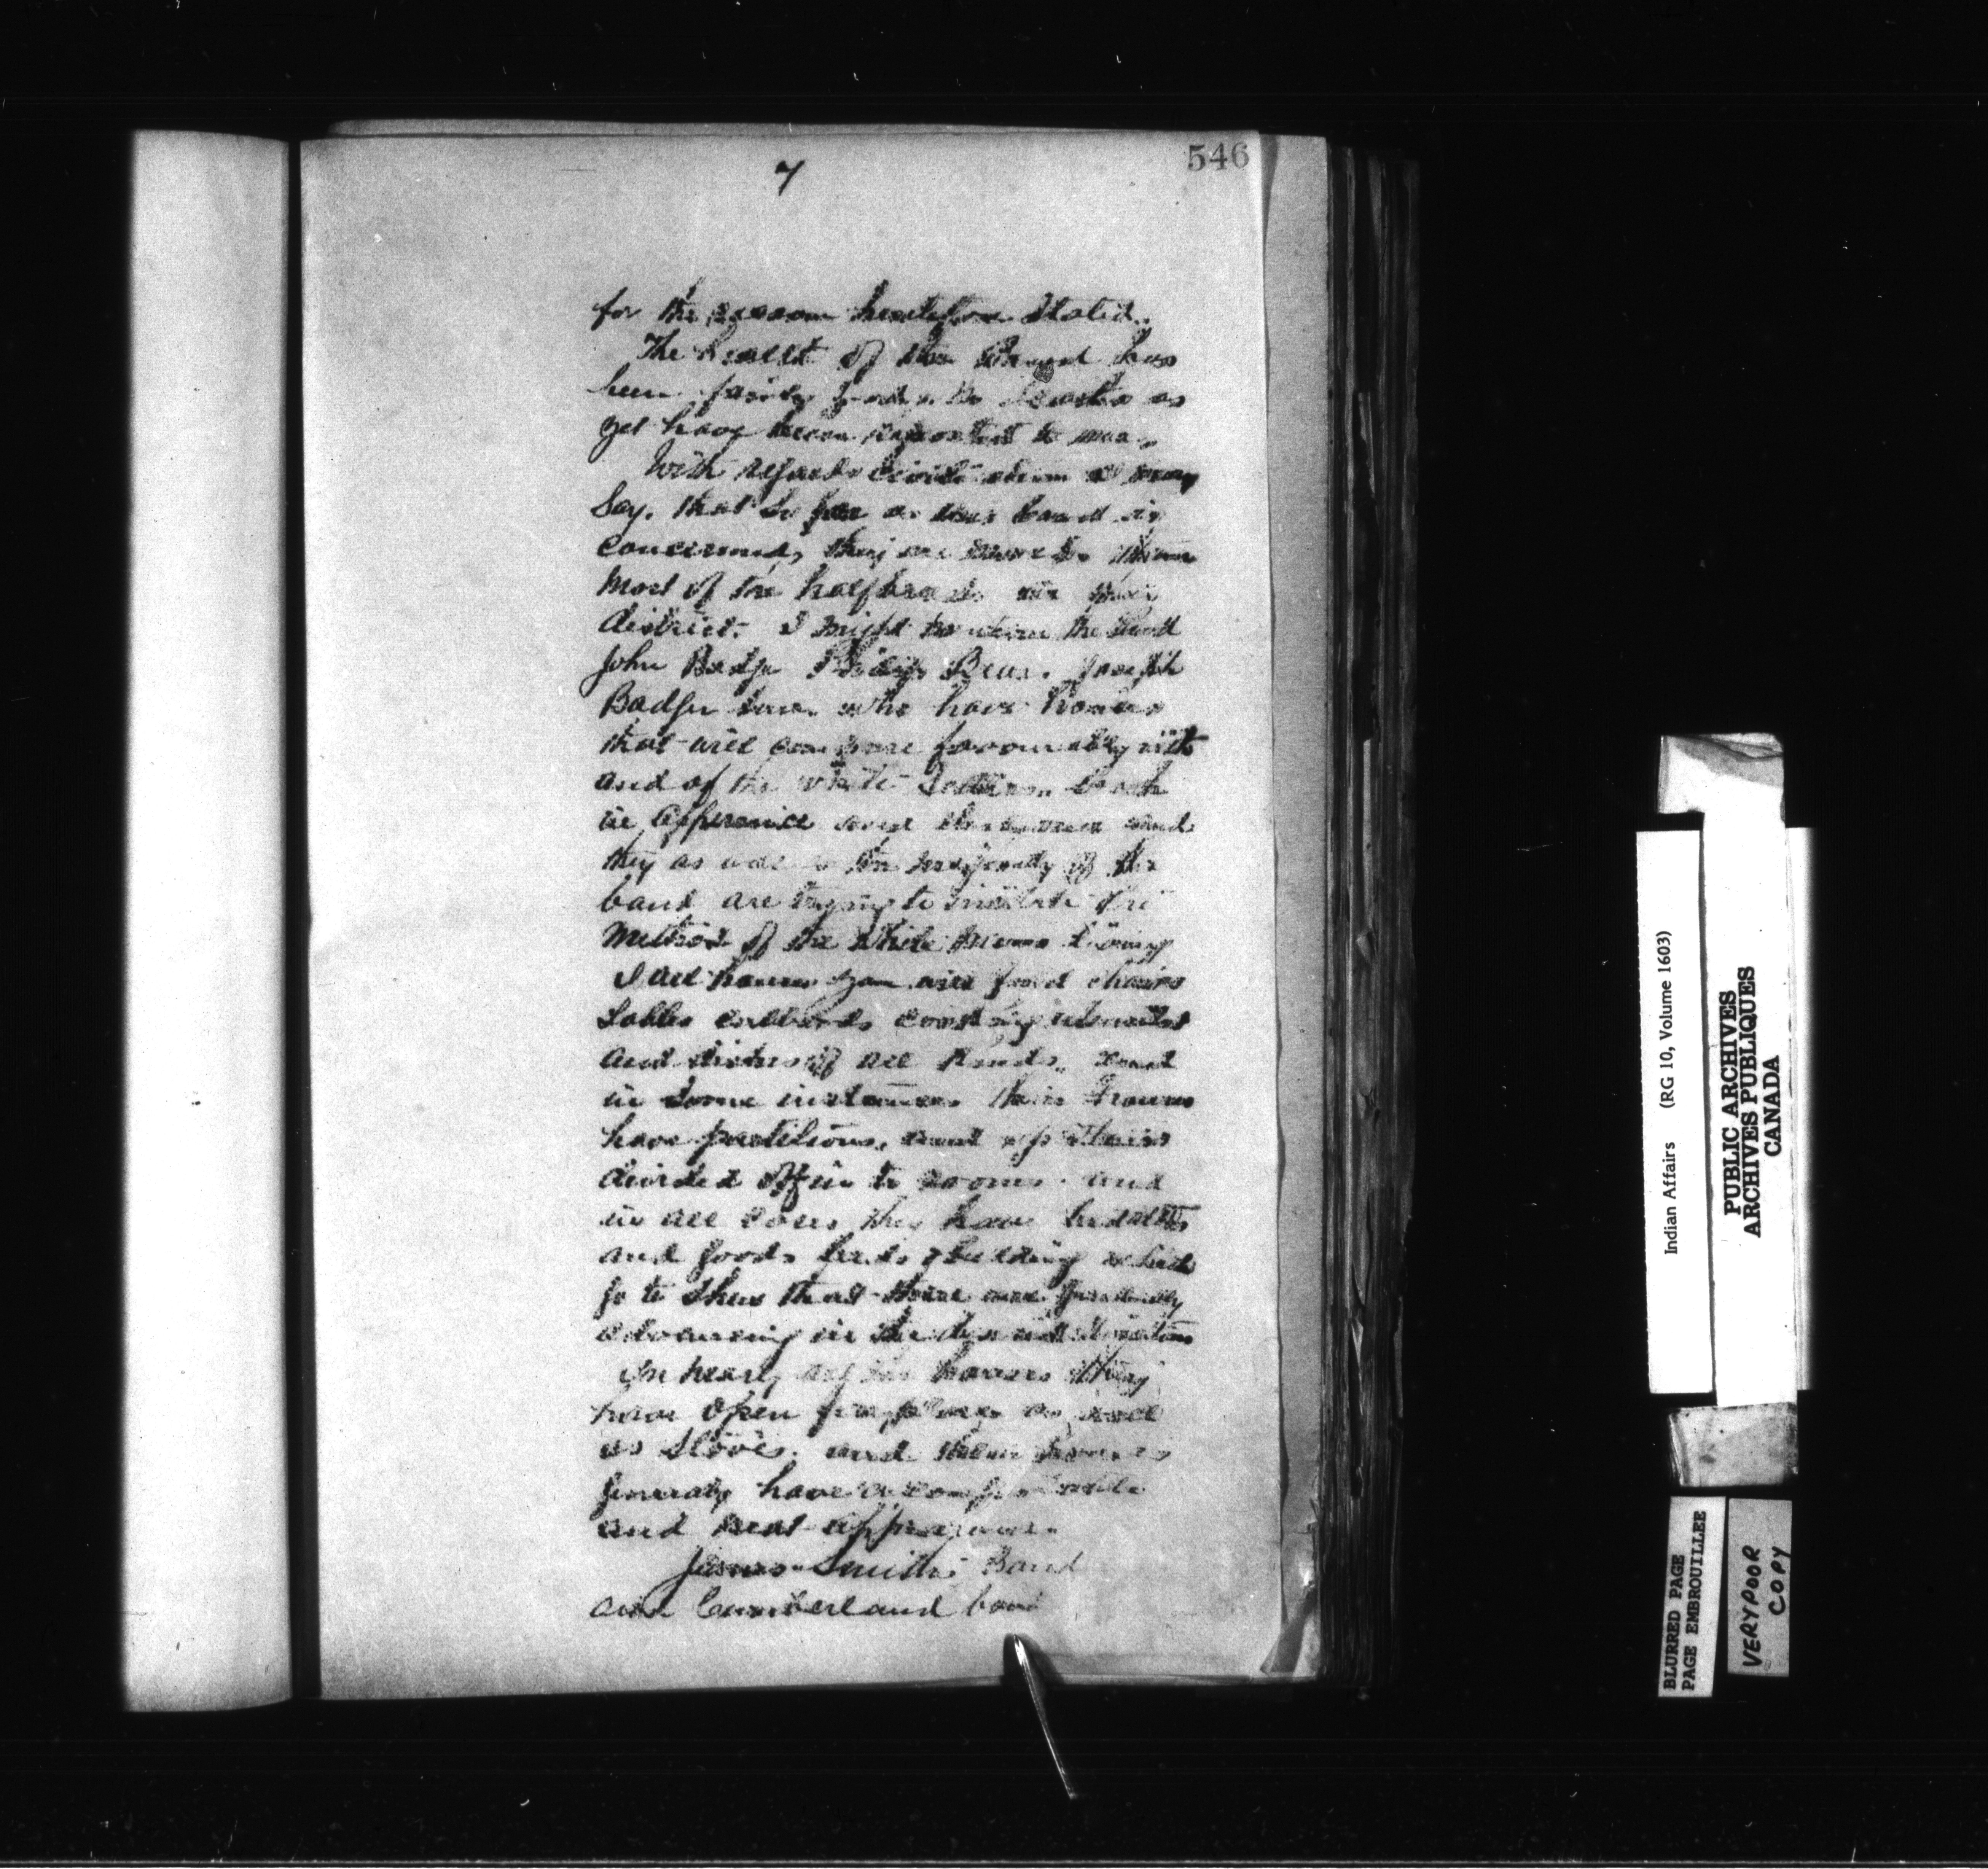 546
7
for the reason heretofore stated.
The health of this Band has
been fairly good, no deaths as
yet have been reported to me.
With regards civilization I may
say, that so far as this band is
concerned, they are more so than
most of the halfbreeds in this
district. I might mention the
John Badger Philip Bear. Joseph
Badger who have houses
that will compare favourably with
and of the white Settlers both
in apperance and and
they as well as the majority of the
band are trying to imitate the
method of the white mans living
I all houses you will find chairs
tables cubbords cooking utensils
and dishes of all kinds, and
in some instances their houses
have partitions, and up stairs
divided off in to rooms and
in all cases they have bedsteads
and goods beds & bedding which
go to shew that these are gradually
advancing in the right direction
In nearly all the houses they
have open fire places as well
as stoves. and their houses
generaly have a comfortable
and neat apperance.
James Smith's Band
and Cumberland band
Indian Affairs (RG 10, Volume 1603)
PUBLIC ARCHIVES
ARCHIVES PUBLIQUES
CANADA
BLURRED PAGE
PAGE EMBROUILLEE
VERY POOR
COPY